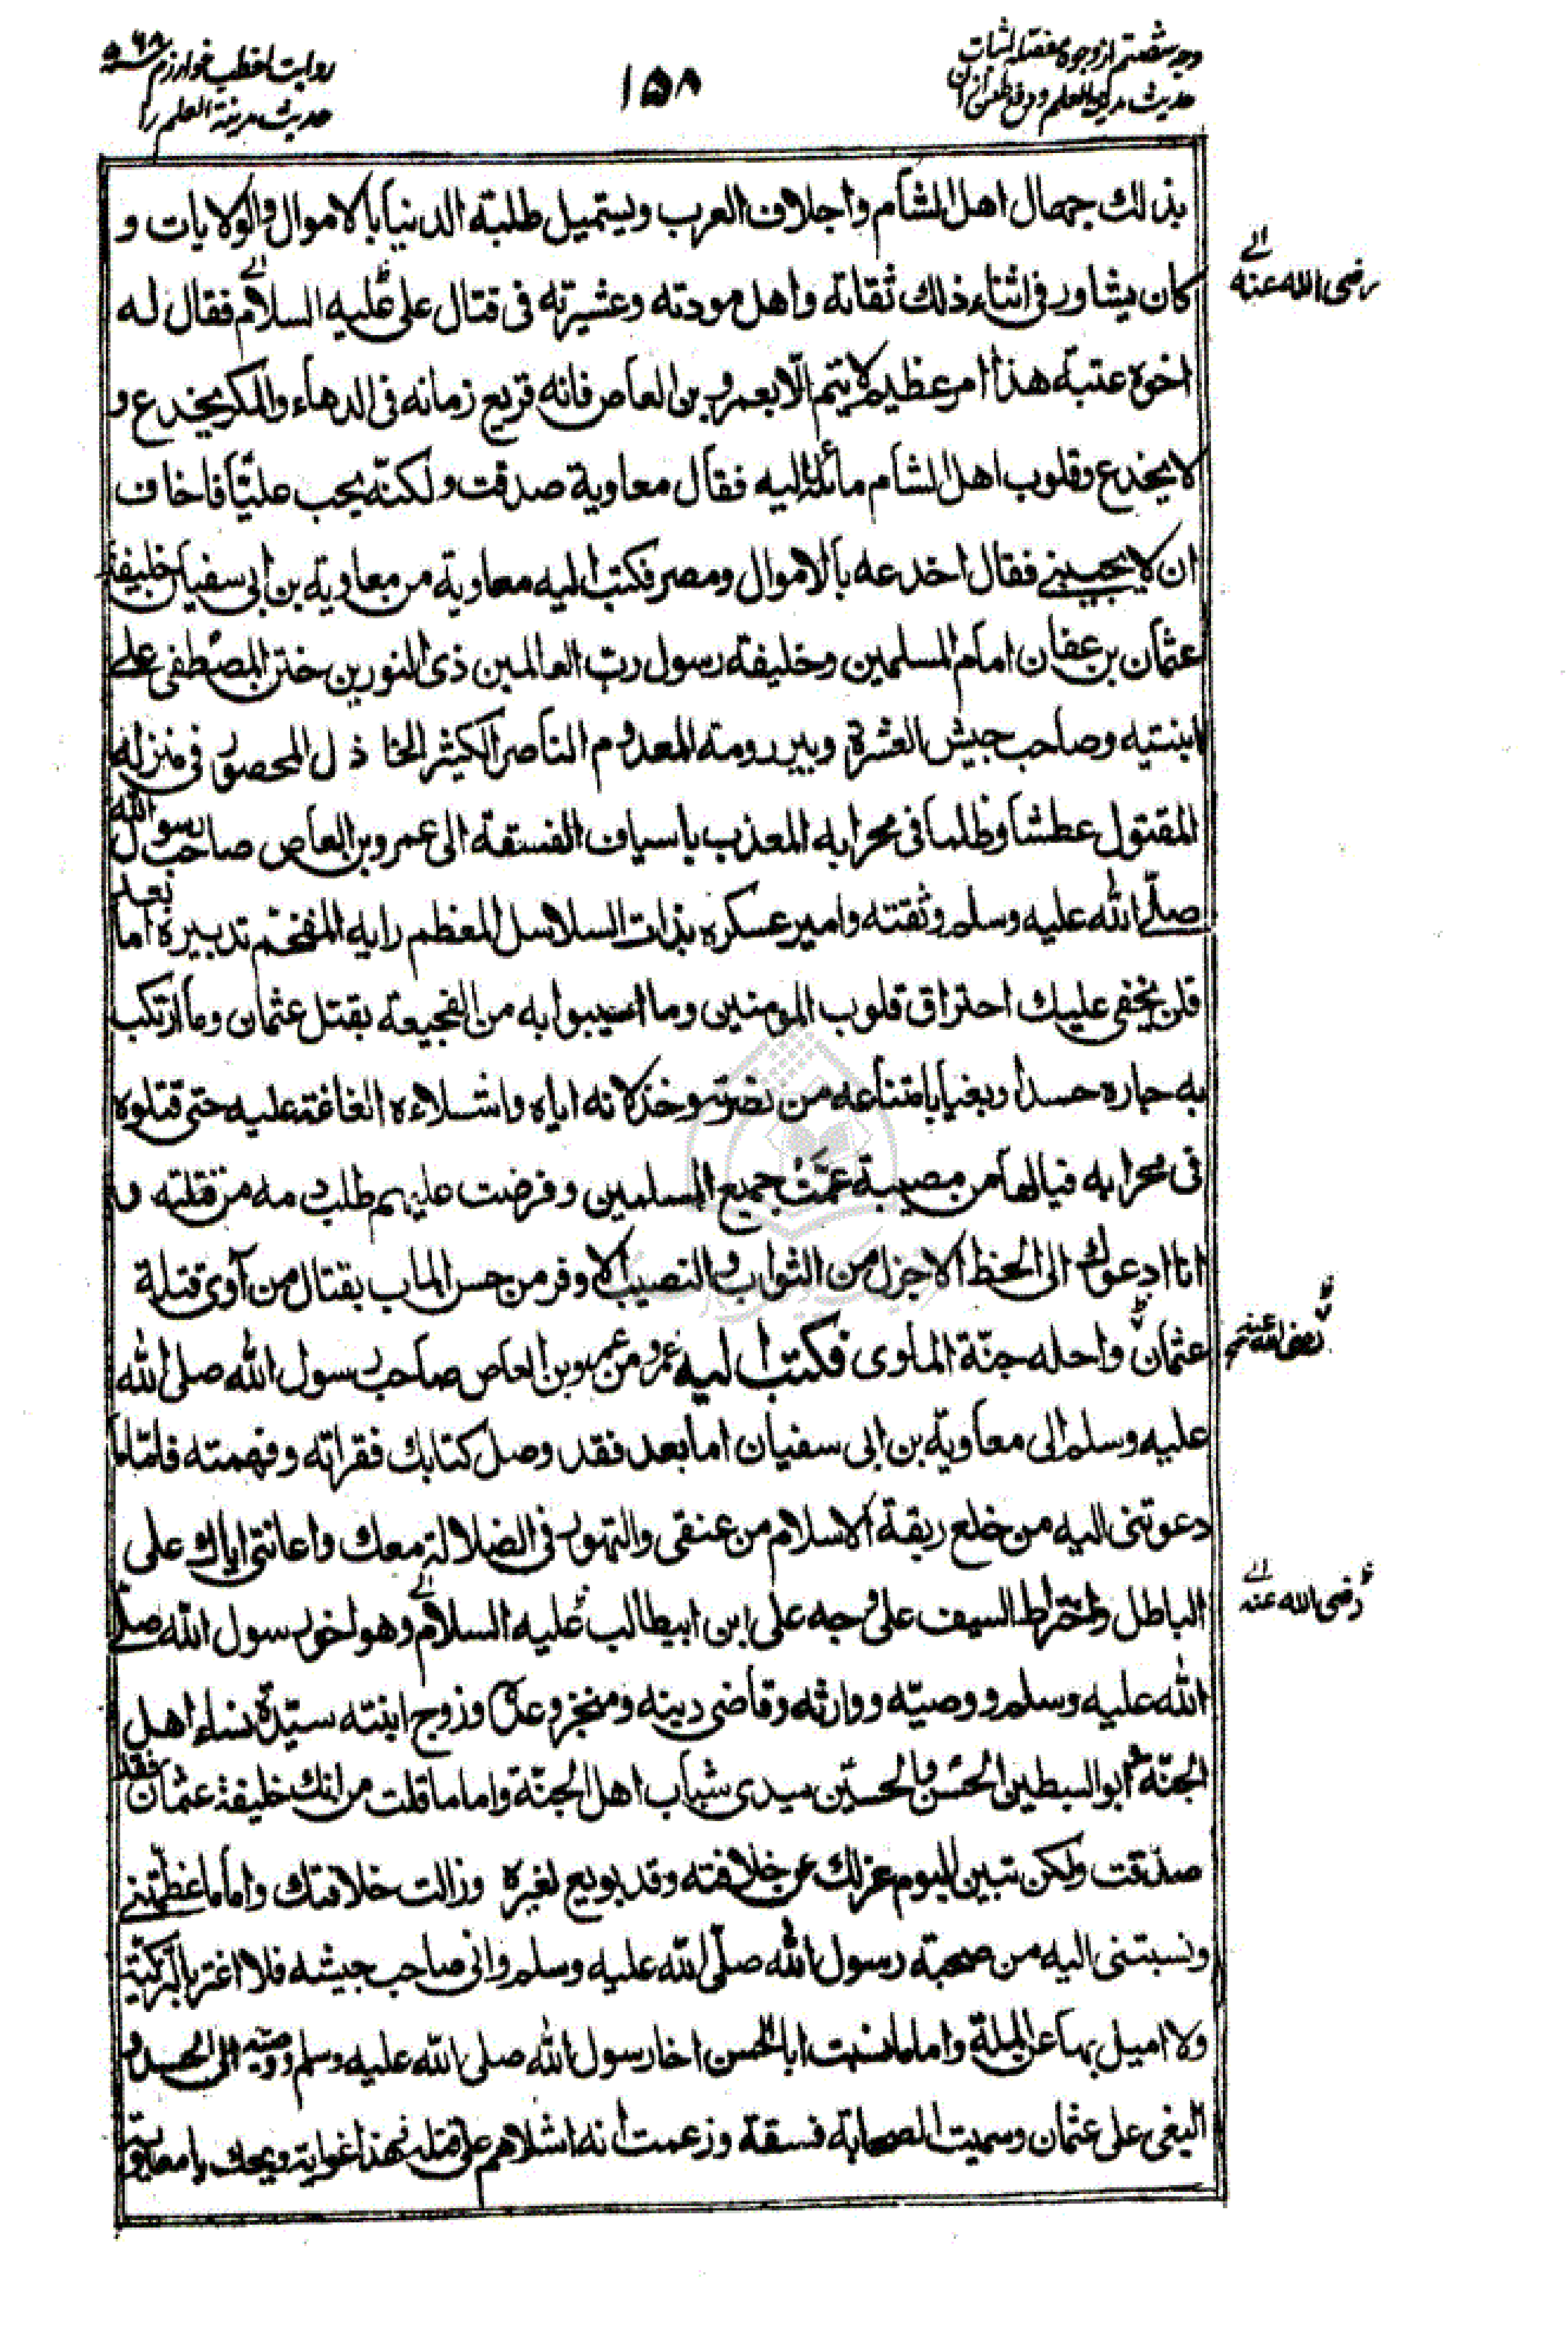 وجه شصتم از وجوه مفصله اثبات
حديث مدينة العلم ودفع طعن از ان
١٥٨
روايت اخطب خوارزم
حديث مدينة العلم را
بذلك جهال اهل الشام واجلاف العرب ويستميل طلبة الدنيا بالاموال والولايات و
كان يشاور فى اثناء ذلك ثقاته واهل مودته وعشيرته فى قتال على عليه السلام فقال له
رضى الله عنه
اخوه عتبة هذا امر عظيم لا يتم الّا بعمرو بن العاص فانه قريع زمانه فى الدهاء والمكر يخدع و
لا يخدع وقلوب اهل الشام مائلة اليه فقال معاوية صدقت ولكنّه يحب عليّا فاخاف
ان لا يجيبنى فقال اخدعه بالاموال ومصر فكتب اليه معاوية من معاوية بن ابى سفيان خليفة
عثمان بن عفان امام المسلمين وخليفة رسول ربّ العالمين ذى النورين ختن المصطفى على
ابنتيه وصاحب جيش العشرة وبير رومة المعدوم الناصر الكثير الخاذل المحصور فى منزله
المقتول عطشا وظلما فى محرابه المعذب باسياف الفسقة الى عمرو بن العاص صاحب رسول الله
صلّى الله عليه وسلم وثقته وامير عسكره بذات السلاسل المعظم رايه المفخّم تدبيره اما بعد
فلن يخفى عليك احتراق قلوب المومنين وما اصيبوا به من الفجيعة بقتل عثمان وما ارتكب
به جاره حسدا وبغيا بامتناعه من نصرته وخذلانه اياه واشلاءه الغاغة عليه حتى قتلوه
فى محرابه فيالها من مصيبة عمّت جميع المسلمين وفرضت عليهم طلب دمه من قتلته و
انا ادعوك الى الحظ الاجزل من الثواب والنصيب الاوفر من حسن الماب بقتال من آوى قتلة
عثمان واحله جنّة الماوى فكتب اليه عمرو من عمرو بن العاص صاحب رسول الله صلى الله
رضى الله عنه
عليه وسلم الى معاوية بن ابى سفيان اما بعد فقد وصل كتابك فقراته وفهمته فامّا ما
دعوتنى اليه من خلع ربقة الاسلام من عنقى والتهور فى الضلالة معك واعانتى اياك على
الباطل واختراط السيف على وجه على ابن ابيطالب عليه السلام وهو اخو رسول الله صلّى
رضى الله عنه
الله عليه وسلم ووصيّه ووارثه وقاضى دينه ومنجز وعده وزوج ابنته سيّدة نساء اهل
الجنّة وابو السبطين الحسن والحسين سيدى شباب اهل الجنّة واما ما قلت من انك خليفة عثمان فقد
صدقت ولكن تبين اليوم عزلك عن خلافته وقد بويع لغيره وزالت خلافتك واما ما عظمتنى
ونسبتنى اليه من صحبة رسول الله صلّى الله عليه وسلم وانى صاحب جيشه فلا اغتر بالتزكية
ولا اميل بها عن الملة واما ما نسبت ابا الحسن اخا رسول الله صلى الله عليه وسلم ووصيّه الى الحسد و
البغى على عثمان وسميت الصحابة فسقة وزعمت انه اشلاهم على قتله فهذا غواية ويحك يا معاوية